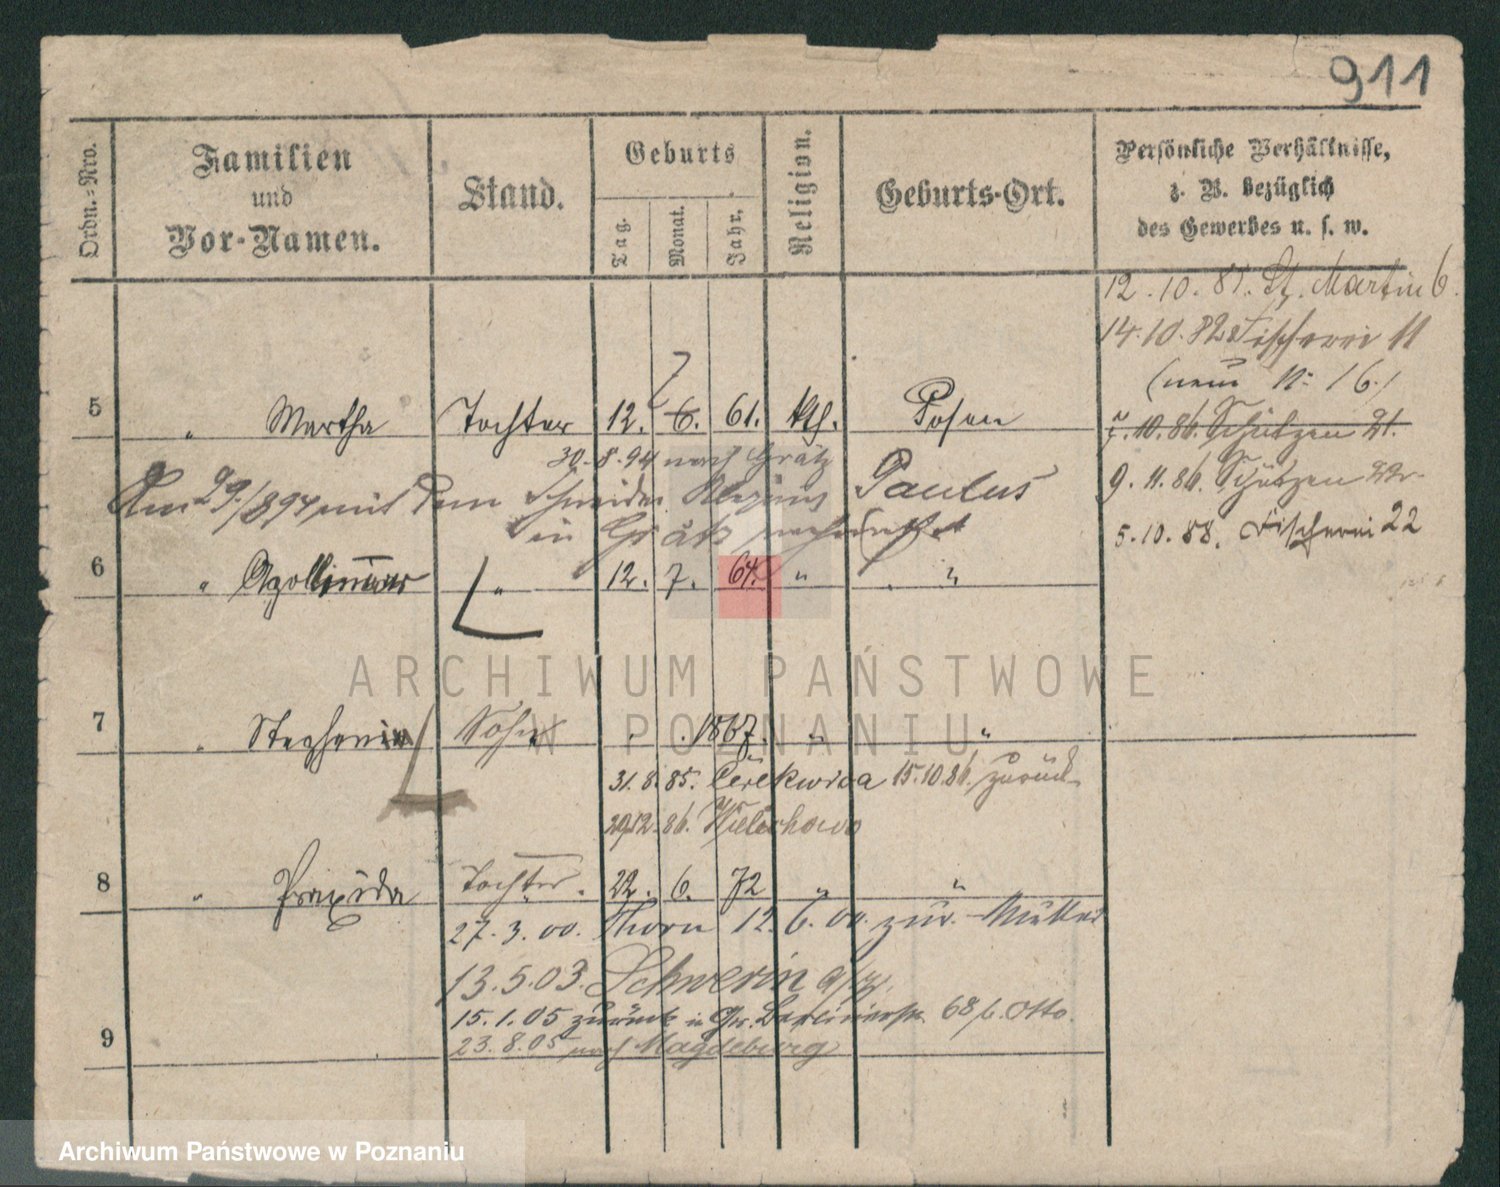 911
Ordn.-Nro.
Familien
und
Vor-Namen.
Stand.
Geburts
Tag.
Monat.
Jahr.
Religion.
Geburts-Ort.
Persönliche Verhältnisse,
z. B. bezüglich
des Gewerbes u. s. w.
12.10.81. St. Martin 6.
14.10.82 Fischerei 11
(neu N: 16.)
7
5 " Martha Tochter 12. 6. 61. kth. Posen
7.10.86. Schützen 21.
30.8.94 nach Grätz
9.11.86. Schützen
Am 29/8 94 mit dem Schneider Paulus
in Grätz verheirathet
5.10.88. Fischerei 22
6 " " 12. 7. 64. " "
7 " Stephan Sohn 1867. " "
31.8.85. Cerekwica 15.10.86. zurück
29.12.86. Wielichowo
8 " Praxeda Tochter. 22. 6. 72 " "
27.3.00. Thorn 12.6.00. zur. Mutter
13.5.03. Schwerin a/W.
15.1.05 zurück in Gr. Berlinerstr. 68 b. Otto.
9
23.8.05 nach Magdeburg
ARCHIWUM PAŃSTWOWE
W POZNANIU
Archiwum Państwowe w Poznaniu